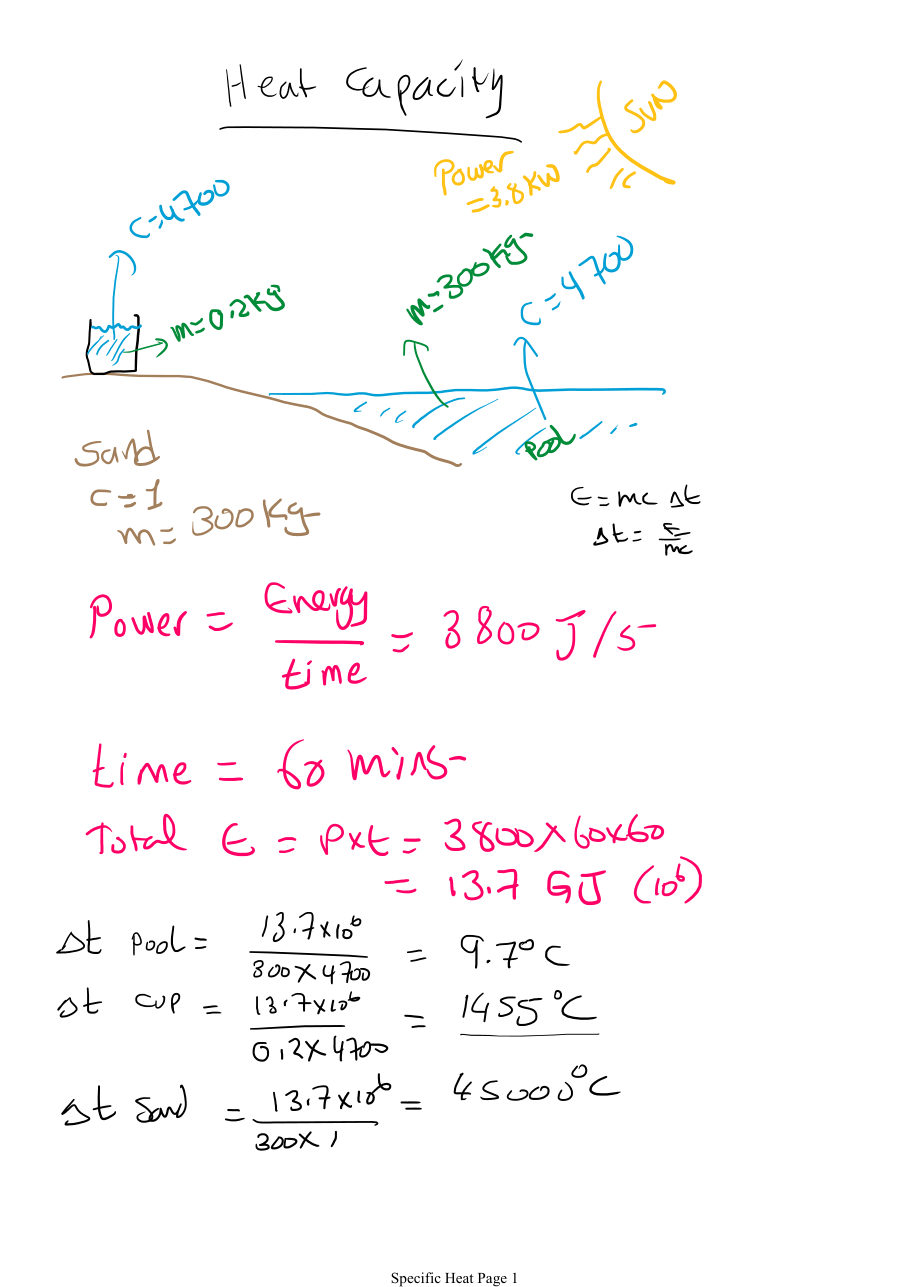 Heat Capacity
SUN
Power
=3.8KW
C=4700
m=0.2Kg
m=300Kg
C=4700
Pool
Sand
C=1
m=300Kg
E=mc Δt
Δt= E/mc
Power = Energy/time = 3800 J/s
time = 60 mins
Total E = Pxt = 3800x60x60
= 13.7 GJ (10⁶)
Δt Pool = 13.7x10⁶/300x4700 = 9.7°C
Δt cup = 13.7x10⁶/0.2x4700 = 1455°C
Δt Sand = 13.7x10⁶/300x1 = 45000°C
Specific Heat Page 1